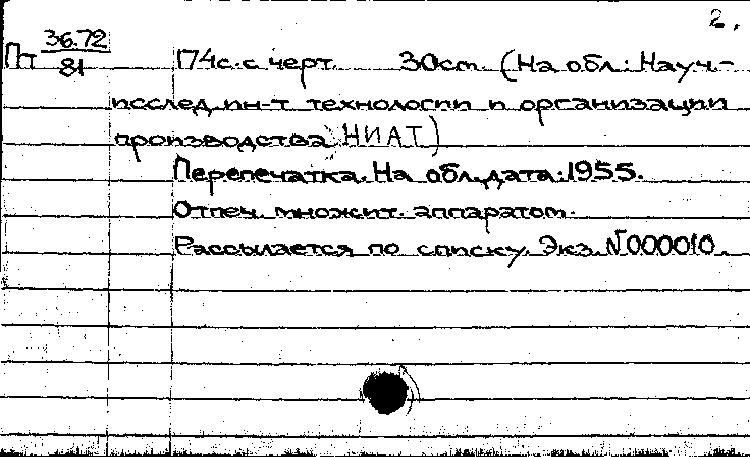 2.
Пт 36.72/81 174с. с черт. 30см. (На обл.: Науч.-
исслед. ин-т технологии и организации
производства НИАТ)
Перепечатка. На обл. дата: 1955.
Отпеч. множит. аппаратом.
Рассылается по списку. Экз. №000010.